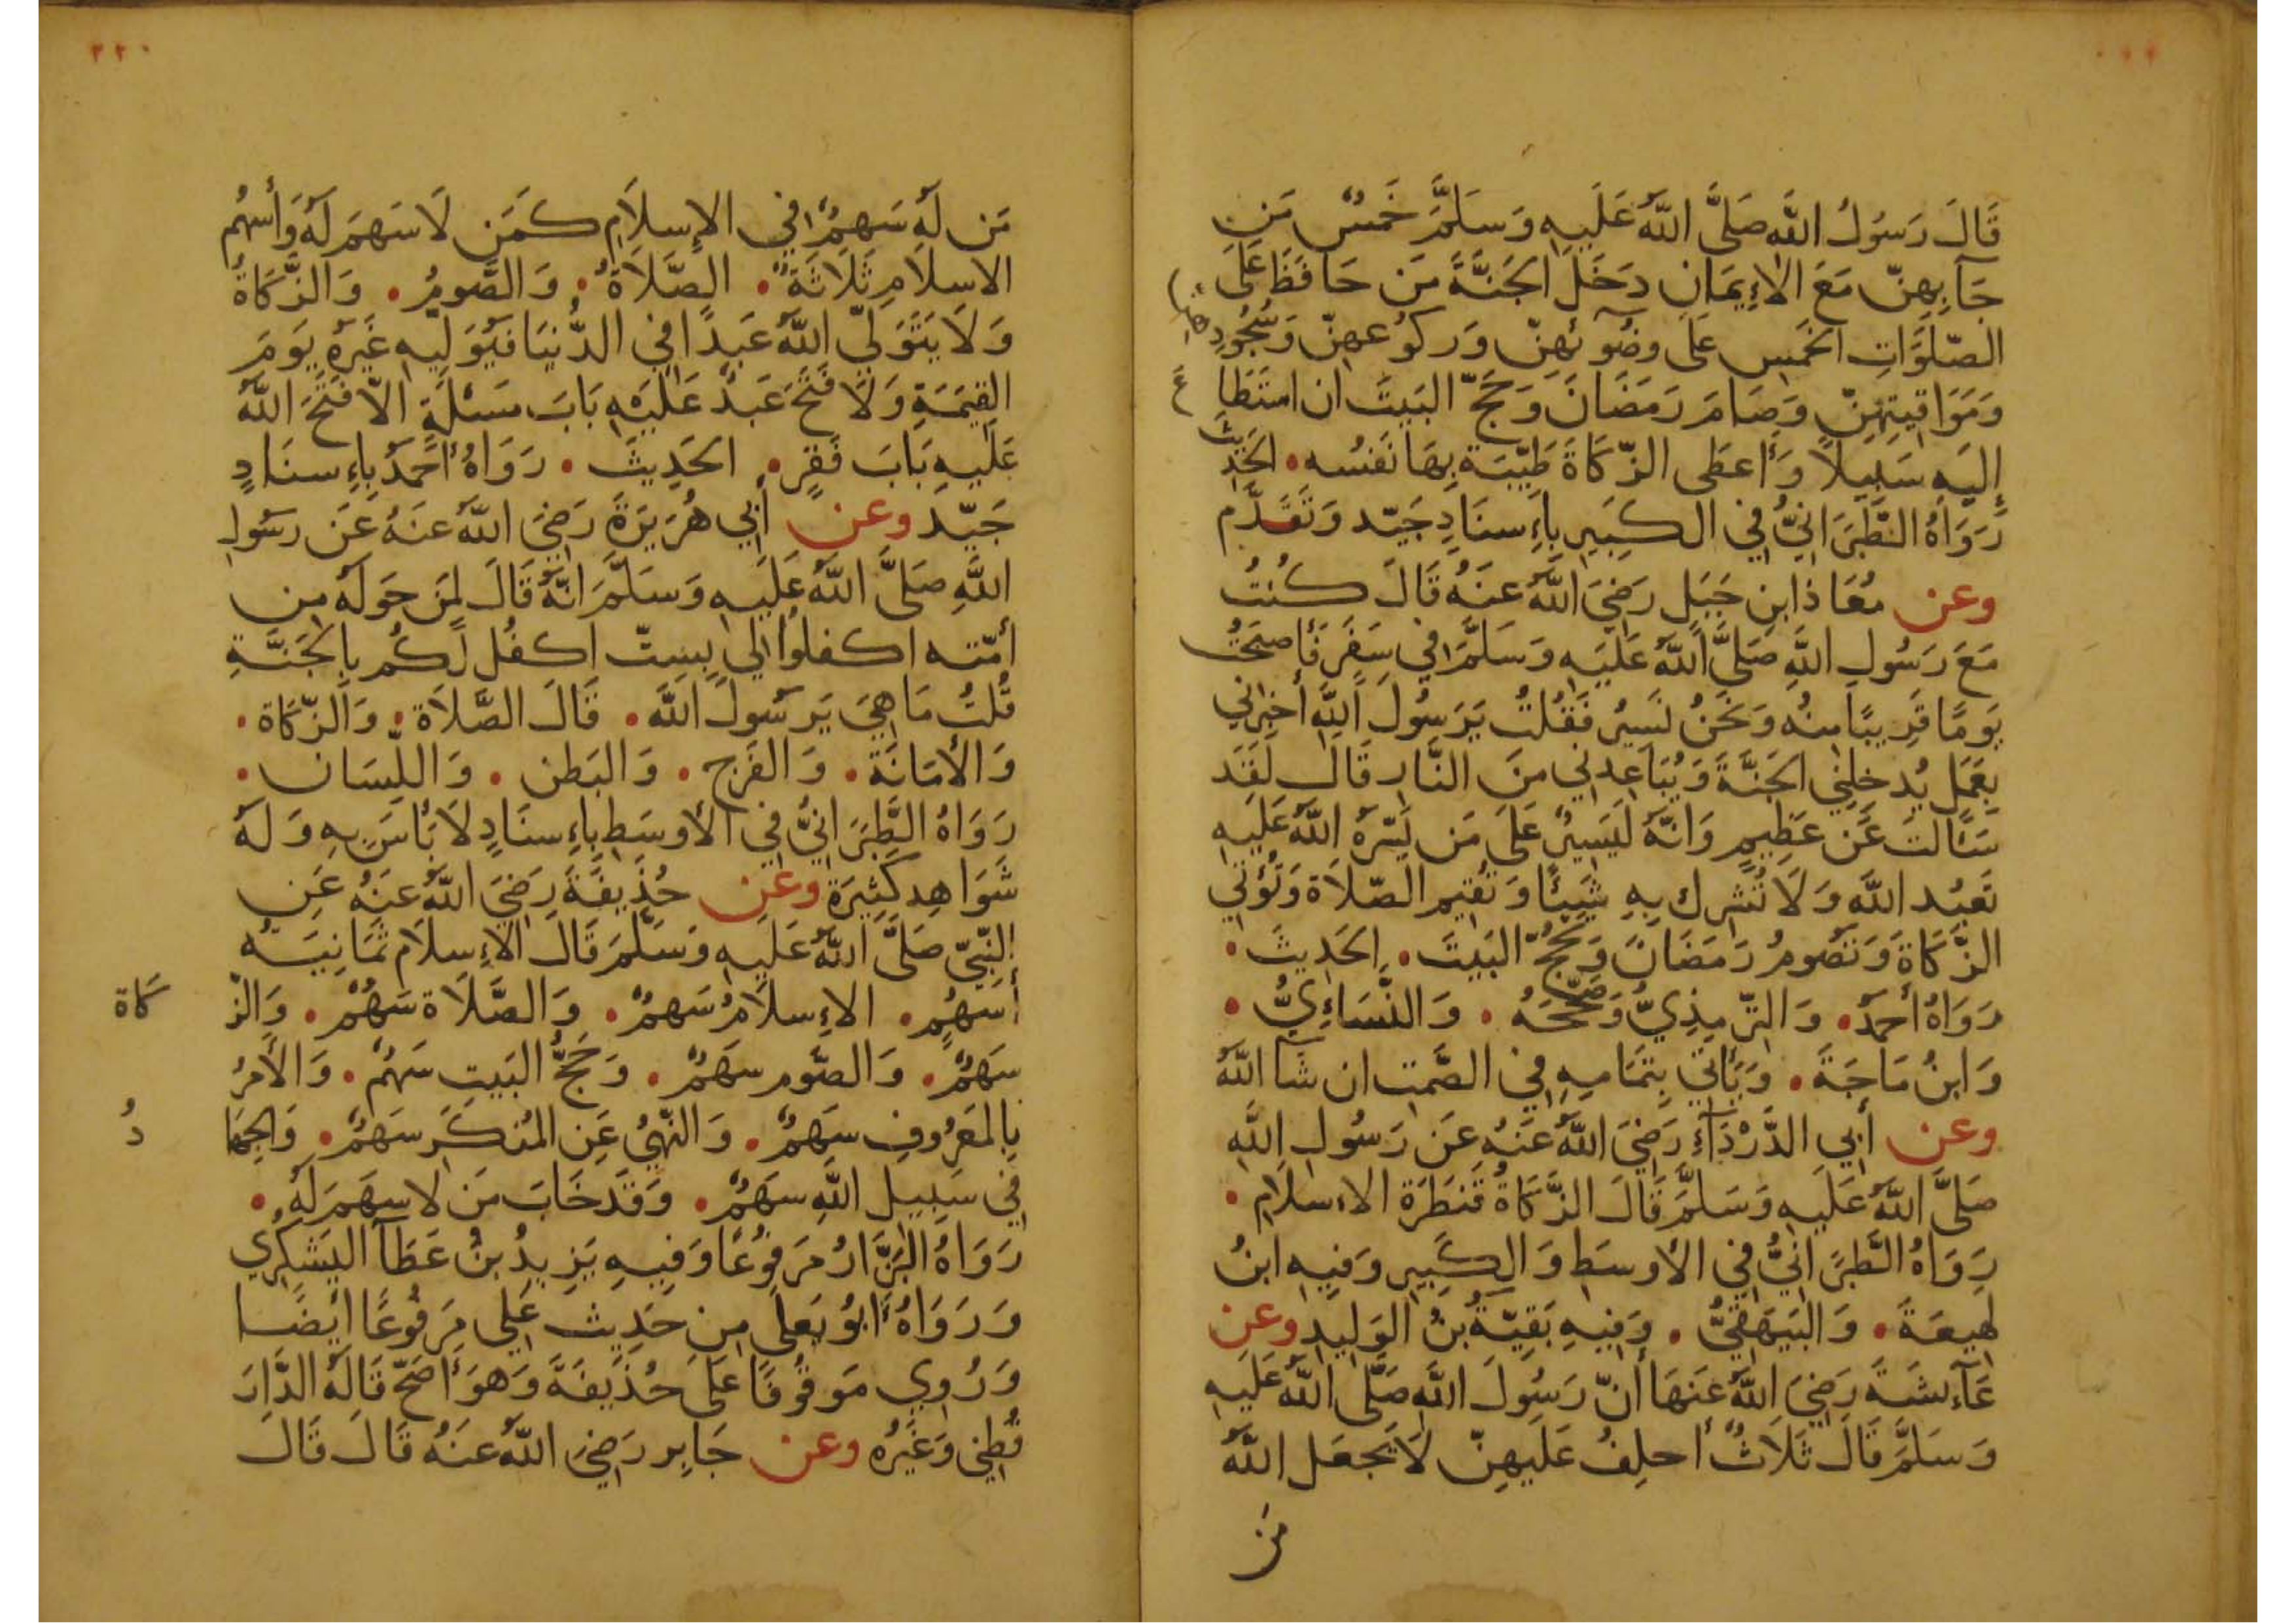 قَالَ رَسُولُ اللَّهِ صَلَّى اللَّهُ عَلَيهِ وَسَلَّمَ خَمسٌ مَنِ
جَآبِهِنّ مَعَ الإِيمَانِ دَخَلَ الجَنَّةَ مَن حَافَظَ عَلَى
الصّلَوَاتِ الخَمسِ عَلَى وضُوئهِنّ وَركُوعهِنّ وَسُجُودِهنّ
وَمَوَاقِيتِهِنّ وَصَامَ رَمَضَانَ وَحَجّ البَيتَ ان استَطَاعَ
إِلَيهِ سَبِيلاً وَأَعطَى الزّكَاةَ طَيّبَة بِهَا نَفسُه • الحَدِيث
رَوَاهُ الطَّبَرَانِيُّ فِي الكَبِيرِ بِإِسنَادٍ جَيّد وَتَقَدَّم
وعن مُعَاذ ابنِ جَبَلٍ رَضِيَ اللَّهُ عَنهُ قَالَ كُنتُ
مَعَ رَسُولِ اللَّهِ صَلَّى اللَّهُ عَلَيهِ وَسَلَّمَ فِي سَفَرٍ فَأَصبَحتُ
يَومًا قَرِيبًا مِنهُ وَنَحنُ نَسِيرُ فَقُلتُ يَرَسُولَ اللَّهِ أَخبِرنِي
بِعَمَلٍ يُدخِلُنِي الجَنَّةَ وَيُبَاعِدنِي مِنَ النَّارِ قَالَ لَقَد
سَأَلتَ عَن عَظِيمٍ وَانّهُ لَيَسِيرٌ عَلَى مَن يَسّرَهُ اللَّهُ عَلَيهِ
تَعبُد اللَّهَ وَلَا تُشرِك بِهِ شَيئًا وَتُقِيم الصّلَاةَ وَتُؤتِي
الزَّكَاةَ وَتَصُومُ رَمَضَانَ وَتَحُجُّ البَيتَ • الحَدِيثَ •
رَوَاهُ أَحمَدُ • وَالتّرمِذِيُّ وَصَحّحَهُ • وَالنَّسَاءِيُّ •
وَابنُ مَاجَةَ • وَيَأتِي بِتَمَامِهِ فِي الصَّمتِ ان شَآ اللَّهُ
وعن أَبِي الدَّرْدَآءِ رَضِيَ اللَّهُ عَنهُ عَن رَسُولِ اللَّهِ
صَلَّى اللَّهُ عَلَيهِ وَسَلَّمَ قَالَ الزَّكَاةُ قَنطَرَة الاءسلَامِ •
رَوَاهُ الطَّبَرَانِيُّ فِي الأَوسَطِ وَالكَبِيرِ وَفِيهِ ابنُ
لهِيعَةَ • وَالبَيهَقِيُّ • وَفِيهِ بَقِيّةُ بنُ الوَلِيدِ وعن
عَآءِشَةَ رَضِيَ اللَّهُ عَنهَا أَنّ رَسُولَ اللَّهِ صَلَّى اللَّهُ عَلَيهِ
وَسَلَّمَ قَالَ ثَلَاثٌ أَحلِفُ عَلَيهِنّ لَا يَجعَل اللَّهُ
مَن
٢٢٠
مَن لَهُ سَهمٌ فِي الإِسلَامِ كَمَن لَا سَهمَ لَهُ وَأَسهُم
الاسلَامِ ثَلَاثَةٌ • الصَّلَاةُ • وَالصَّومُ • وَالزَّكَاةُ
وَلَا يَتَوَلّى اللَّهُ عَبدًا فِي الدُّنيَا فَيُوَلِّيهِ غَيرَهُ يَومَ
القِيمَةِ وَلَا فَتَحَ عَبدٌ عَلَيهِ بَابَ مَسئَلَةٍ الّا فَتَحَ اللَّهُ
عَلَيهِ بَابَ فَقرٍ • الحَدِيثَ • رَوَاهُ أَحمَدُ بِإِسنَادٍ
جَيّد وعن أَبِي هُرَيرَةَ رَضِيَ اللَّهُ عَنهُ عَن رَسُولِ
اللَّهِ صَلَّى اللَّهُ عَلَيهِ وَسَلَّمَ انّهُ قَالَ لِمَن حَولَهُ مِن
أُمّتِه اكفلُوا لِي بِسِتّ اكفُل لَكُم بِالجَنَّةِ
قُلتُ مَا هِيَ يَرَسُولَ اللَّهِ • قَالَ الصَّلَاة • وَالزّكَاة •
وَالأَمَانَة • وَالفَرج • وَالبَطن • وَاللّسَان •
رَوَاهُ الطَّبَرَانِيُّ فِي الأَوسَطِ بِإِسنَادٍ لَا بَأسَ بِهِ وَلَهُ
شَوَاهِد كَثِيرَة وعَن حُذَيفَةَ رَضِيَ اللَّهُ عَنهُ عَنِ
النّبِيّ صَلَّى اللَّهُ عَلَيهِ وَسَلَّمَ قَالَ الإِسلَام ثَمَانِيَةُ
أَسهُمٍ • الاءِسلَامُ سَهمٌ • وَالصَّلَاة سَهمٌ • وَالزّكَاة
سَهمٌ • وَالصّوم سَهمٌ • وَحَجُّ البَيتِ سَهمٌ • وَالأَمرُ
بِالمَعرُوفِ سَهمٌ • وَالنّهيُ عَنِ المُنكَرِ سَهمٌ • وَالجِهَادُ
فِي سَبِيلِ اللَّهِ سَهمٌ • وَقَد خَابَ مَن لا سهمَ لَهُ •
رَوَاهُ البَزَّارُ مَرفُوعًا وَفِيهِ يَزِيدُ بنُ عَطَآ اليَشكُرِي
وَرَوَاهُ ابُو يَعلَى مِن حَدِيث عَلِي مَرفُوعًا أَيضًا
وَرُوِي مَوقُوفًا عَلَى حُذَيفَةَ وَهوَ أَصَحّ قَالَهُ الدَّارَ
قُطنِي وَغَيرُه وعن جَابِر رَضِيَ اللَّهُ عَنهُ قَالَ قَالَ